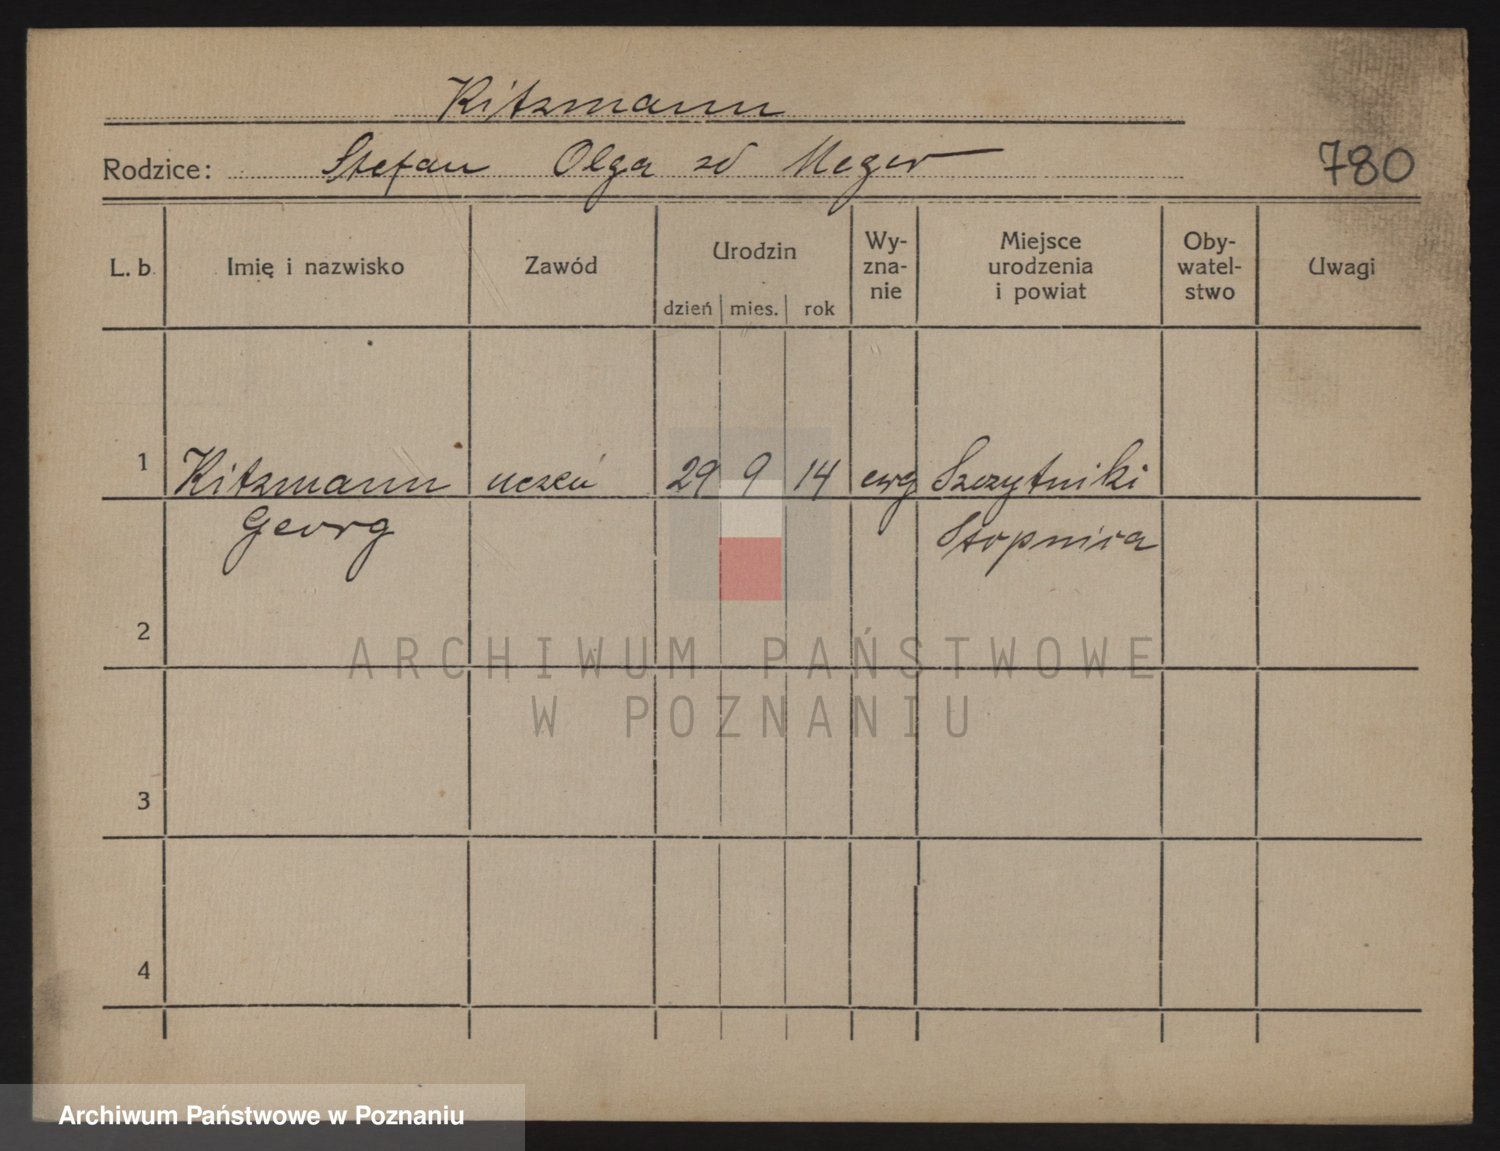 Kitzmann
Rodzice: Stefan Olga zd Meger
780
L. b. Imię i nazwisko Zawód Urodzin dzień mies. rok Wy-zna-nie Miejsce urodzenia i powiat Oby-watel-stwo Uwagi
1 Kitzmann uczeń 29 9 14 ewg Szczytniki
Georg Stopnica
2
ARCHIWUM PAŃSTWOWE
W POZNANIU
3
4
Archiwum Państwowe w Poznaniu